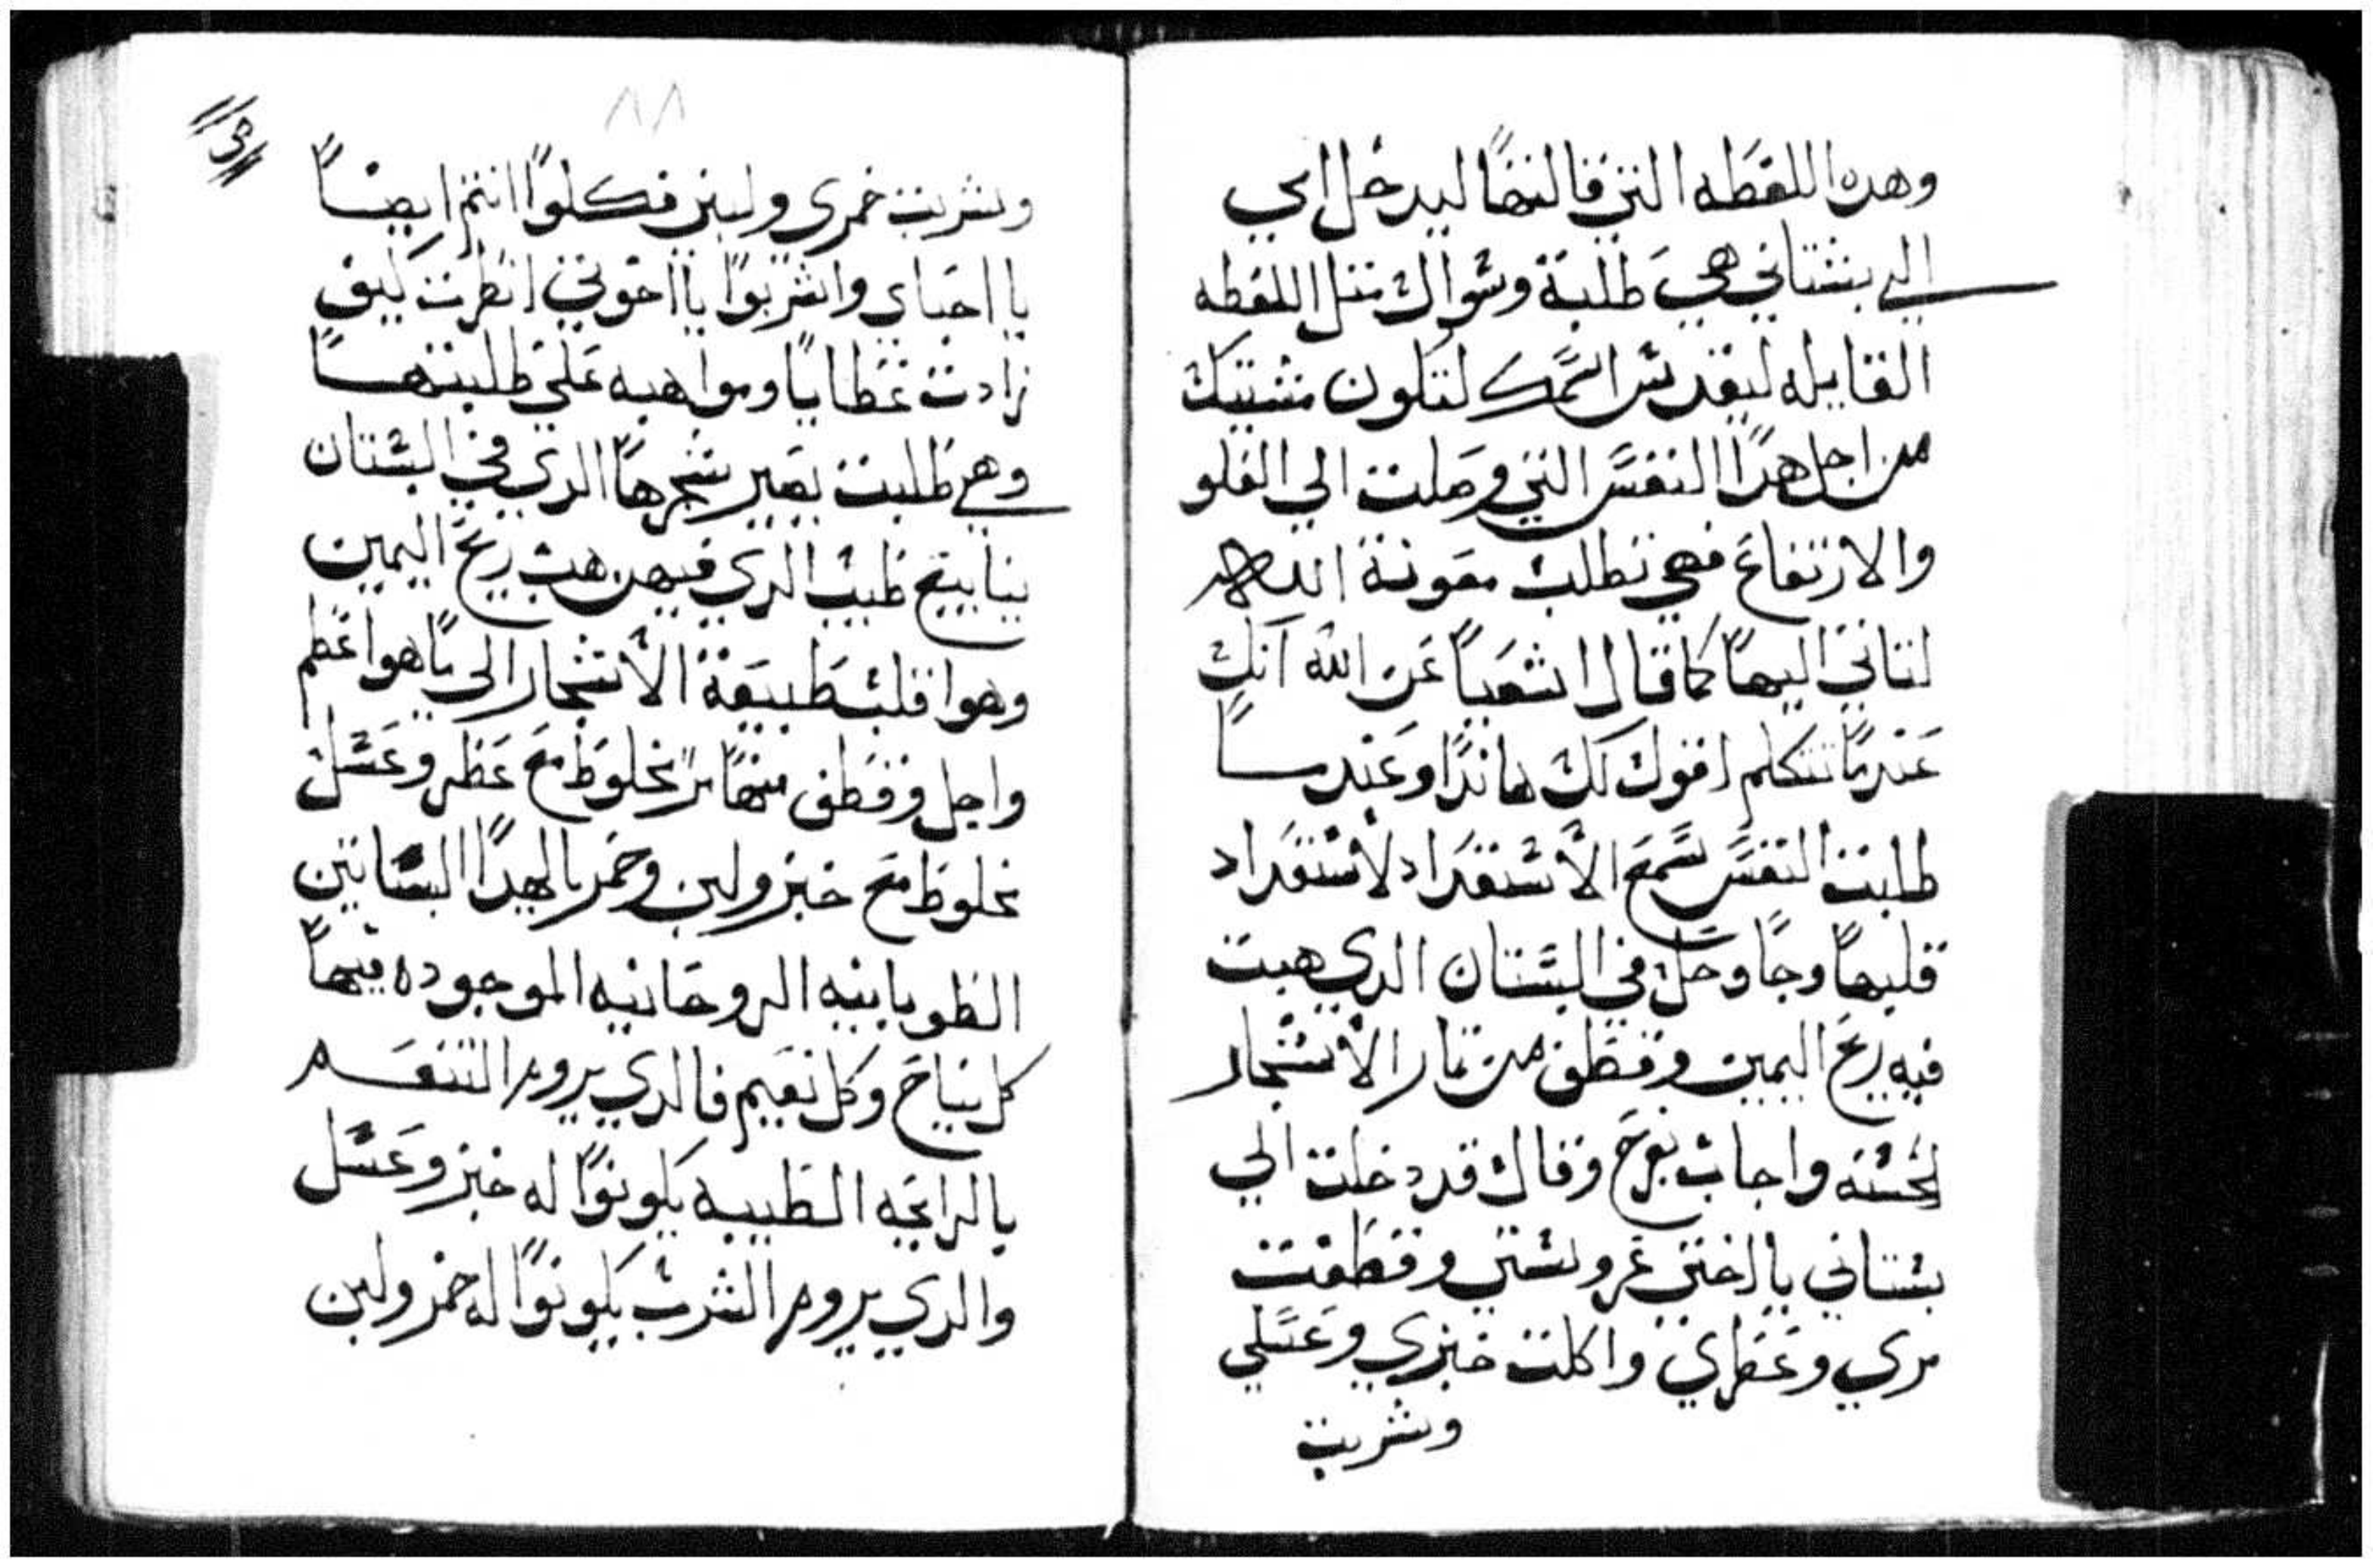 وهده اللفظه التي قالتها ليدخل ابي
الي بستاني هي طلبة وسوال مثل اللفظه
القايله ليقدس اسمك لتكون مشيتك
من اجل هدا النفس التي وصلت الي الفلو
والارتفاع فهي تطلب معونة الله
لتاتي اليها كما قال اشعيا عن الله انك
عندما تتكلم اقول لك هاندا وعندما
طلبت النفس سمع الاستعداد لاستعداد
قلبها وجا وحل في البستان الدي هبت
فيه ريح اليمين وقطف من تمار الاشجار
لحسنه واجاب بفرح وقال قد دخلت الي
بستاني يا اختي عروستي وقطفت
مري وعطري واكلت خبزي وعسلي
وشربت
٨٨
وشربت خمري ولبني فكلوا انتم ايضا
يا احباي واشربوا يا اخوتي انظرت كيف
زادت عطايا ومواهبه علي طلبتها
وهي طلبت يصير شجرها الدي في البستان
ينابيع طيب الدي فيهن هب ريح اليمين
وهوا قلب طبيعة الاشجار الى ما هوا عظم
واجل وقطف منها مر مخلوط مع عطر وعسل
مخلوط مع خبز ولبن وخمر يا لهدا البساتين
الطوبابنيه الروحانيه الموجوده فيها
كل نياح وكل نعيم فالدي يروم التنعم
بالرايحه الطيبه يكونوا له خبز وعسل
والدي يروم الشرب يكونوا له خمر ولبن